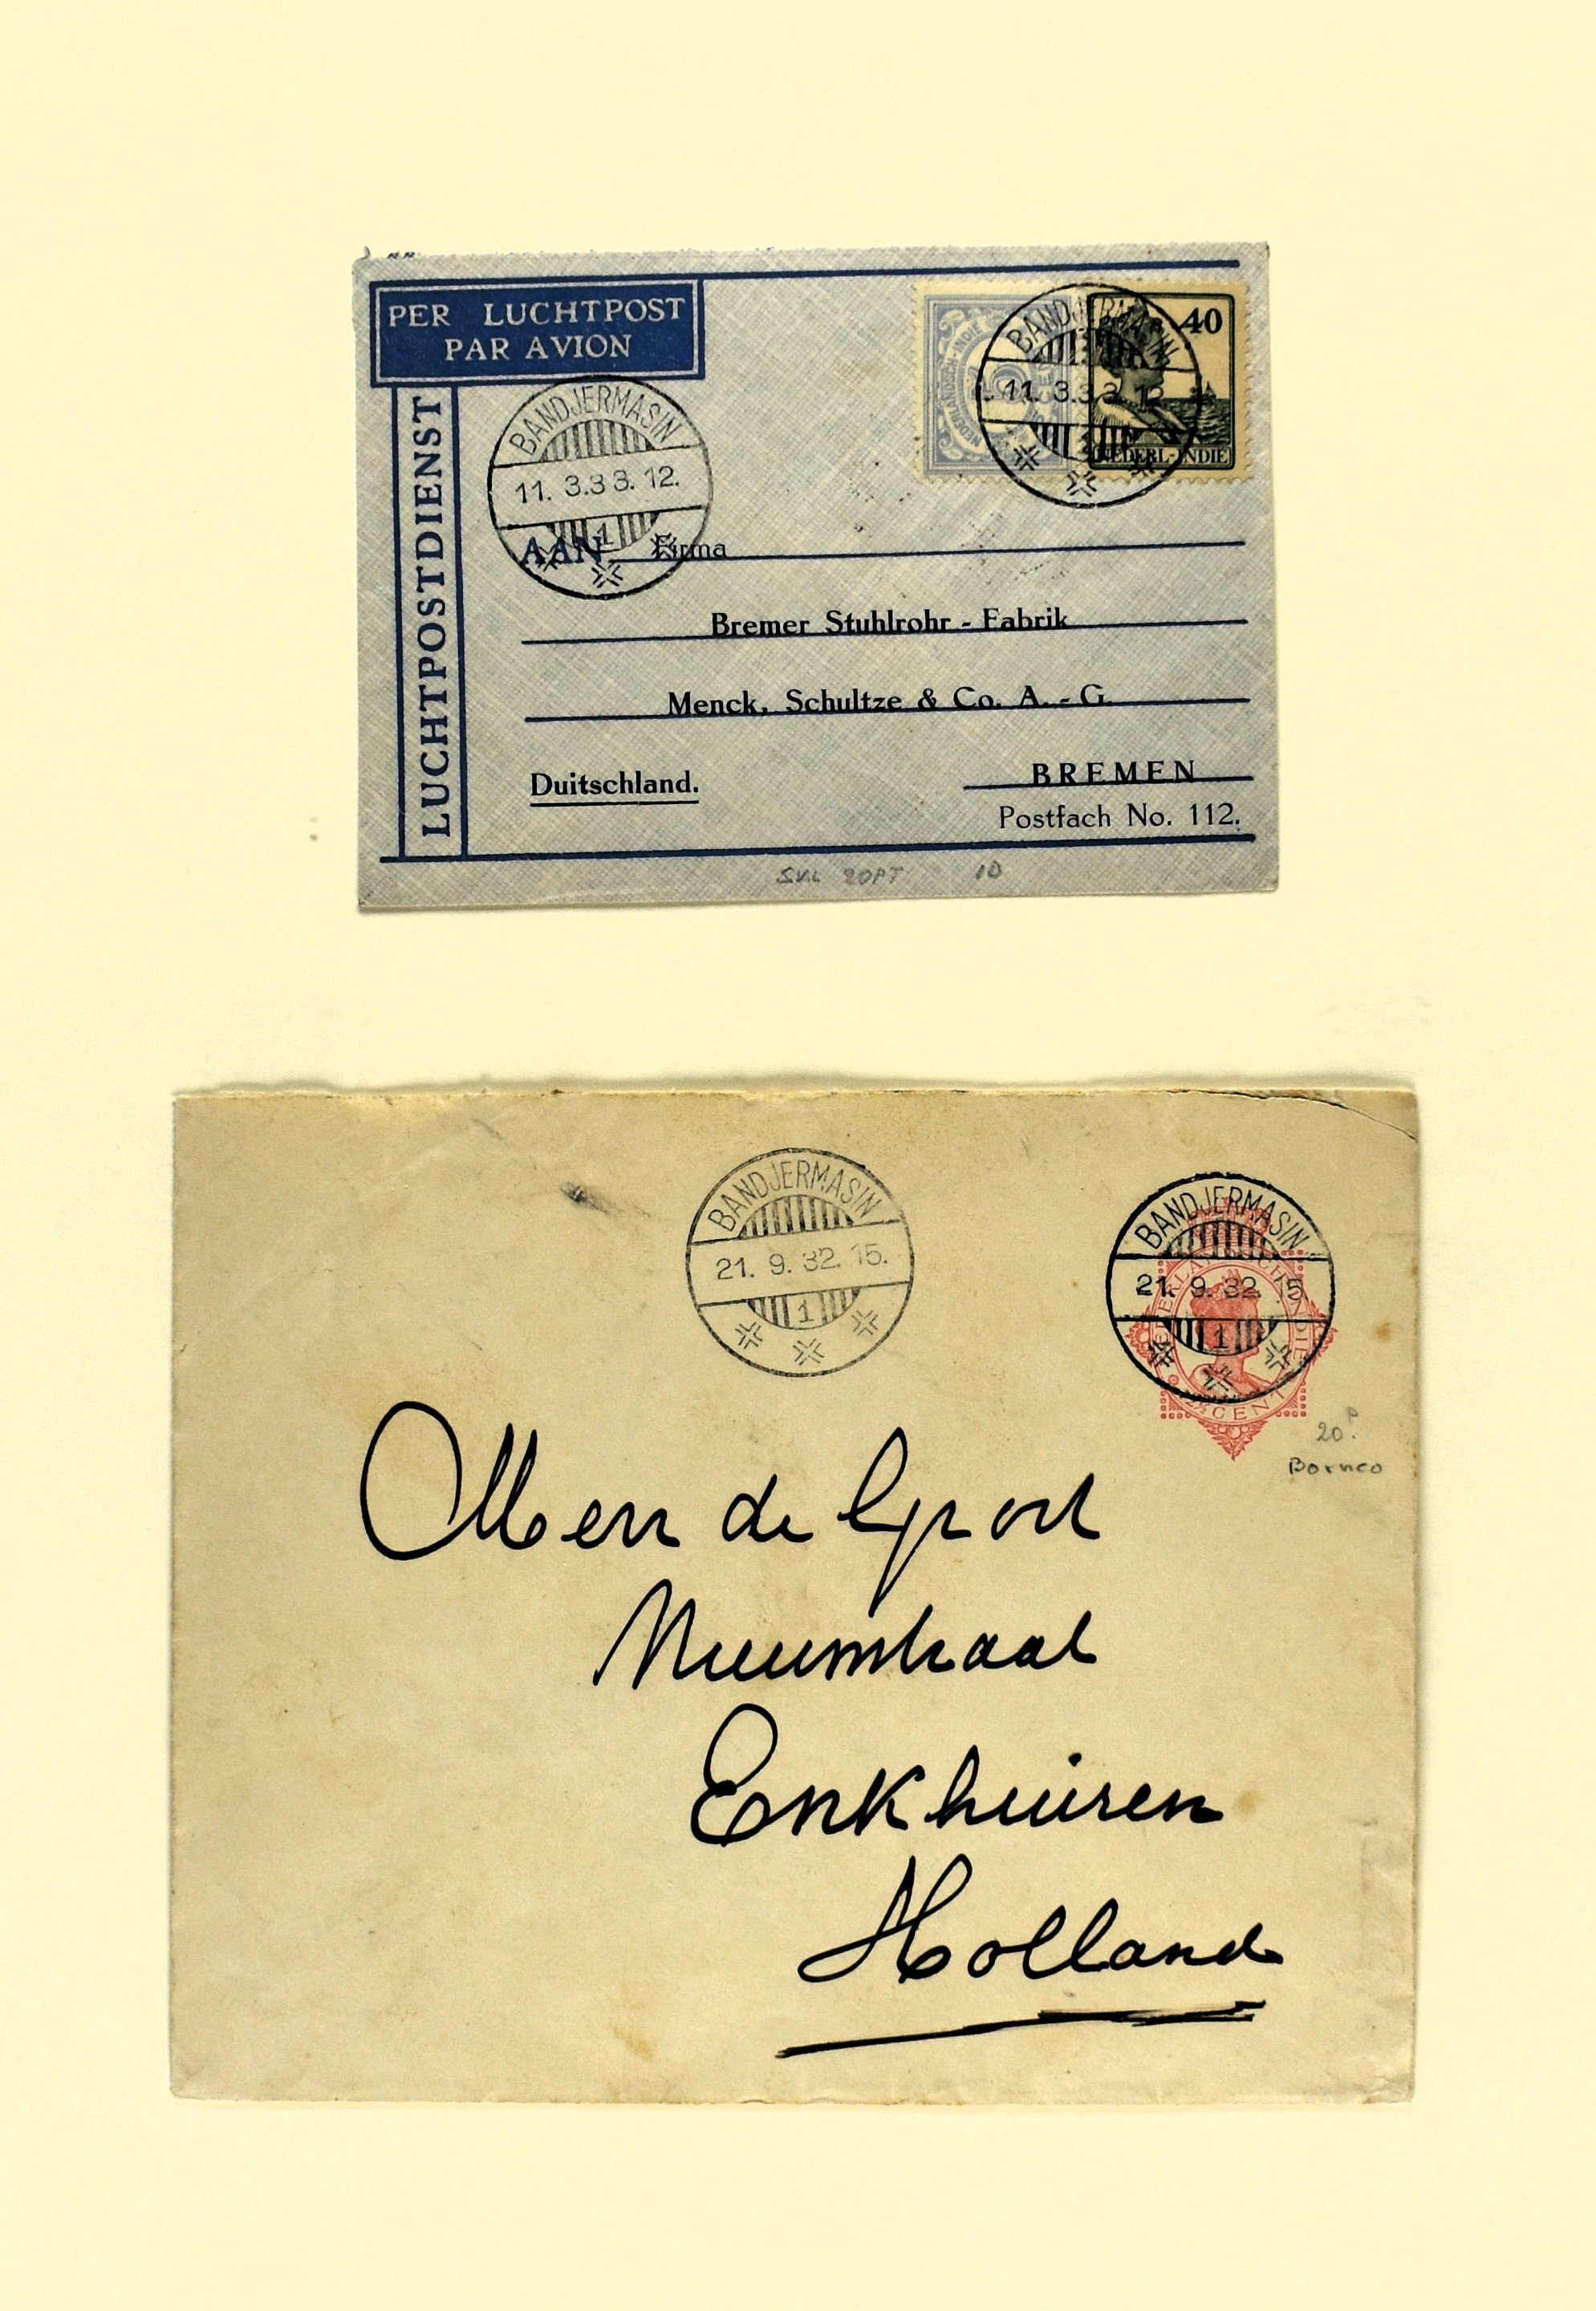 PER LUCHTPOST
PAR AVION
LUCHTPOSTDIENST
BANDJERMASIN
11. 3.33. 12.
1
NEDERLANDSCH-INDIE
5
40
NEDERL-INDIE
BANDJERMASIN
11. 3.33. 12
AAN Firma
Bremer Stuhlrohr - Fabrik
Menck, Schultze & Co. A. - G.
Duitschland.
BREMEN
Postfach No. 112.
10
BANDJERMASIN
21. 9. 32. 15.
1
BANDJERMASIN
21. 9. 32. 15
1
CENT
20
Borneo
de
Enkhuizen
Holland